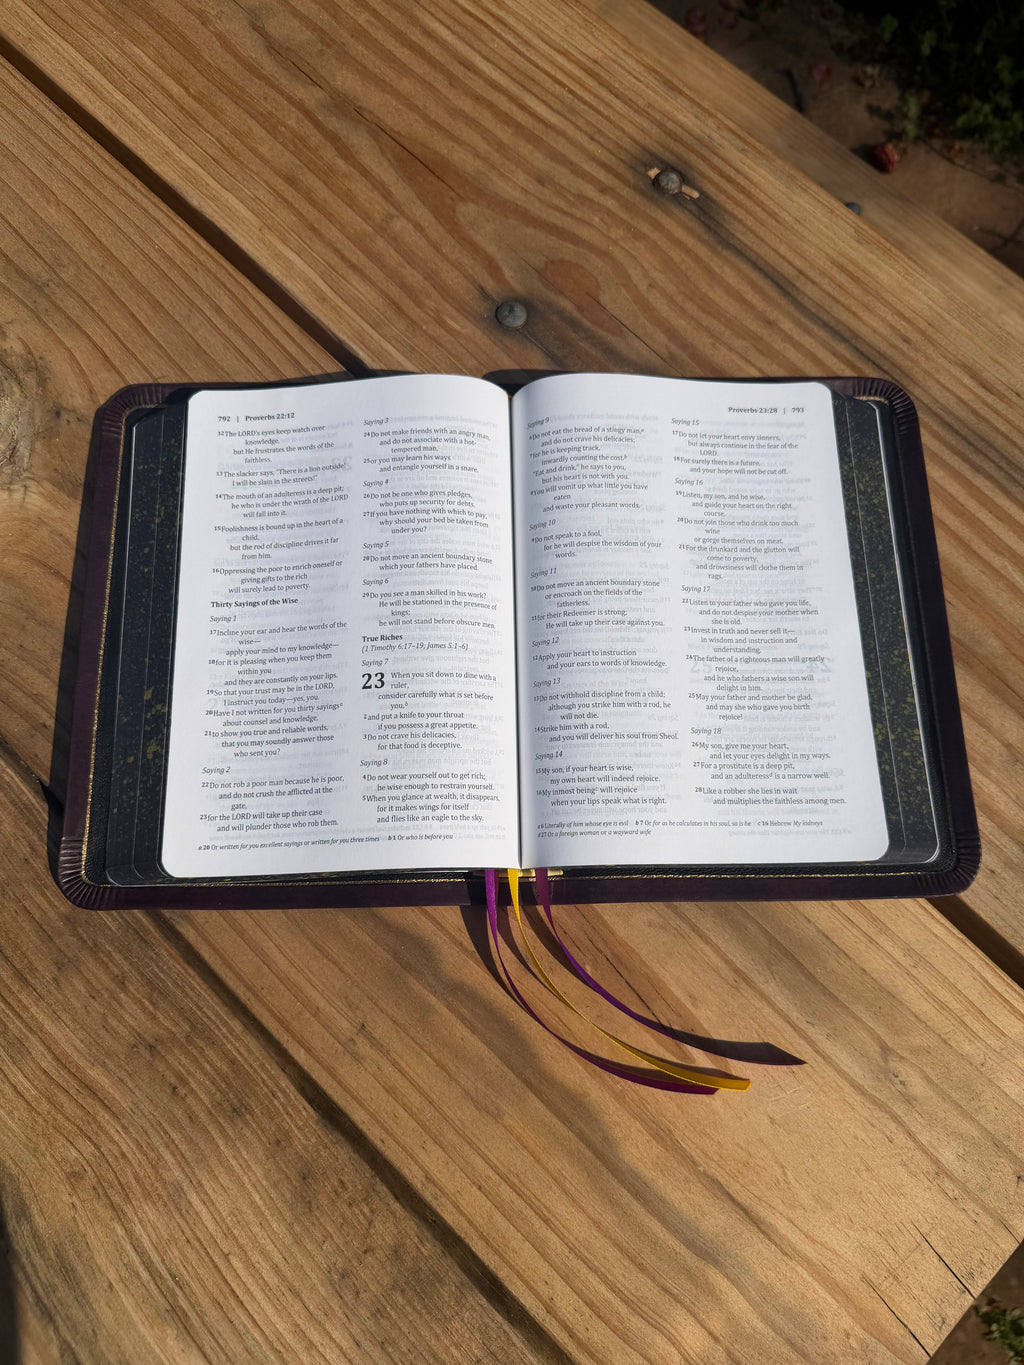 792 | Proverbs 22:12
12 The LORD's eyes keep watch over
knowledge,
but He frustrates the words of the
faithless.
13 The slacker says, "There is a lion outside!
I will be slain in the streets!"
14 The mouth of an adulteress is a deep pit;
he who is under the wrath of the LORD
will fall into it.
15 Foolishness is bound up in the heart of a
child,
but the rod of discipline drives it far
from him.
16 Oppressing the poor to enrich oneself or
giving gifts to the rich
will surely lead to poverty.
Thirty Sayings of the Wise
Saying 1
17 Incline your ear and hear the words of the
wise—
apply your mind to my knowledge—
18 for it is pleasing when you keep them
within you
and they are constantly on your lips.
19 So that your trust may be in the LORD,
I instruct you today—yes, you.
20 Have I not written for you thirty sayings a
about counsel and knowledge,
21 to show you true and reliable words,
that you may soundly answer those
who sent you?
Saying 2
22 Do not rob a poor man because he is poor,
and do not crush the afflicted at the
gate,
23 for the LORD will take up their case
and will plunder those who rob them.
Saying 3
24 Do not make friends with an angry man,
and do not associate with a hot-
tempered man,
25 or you may learn his ways
and entangle yourself in a snare.
Saying 4
26 Do not be one who gives pledges,
who puts up security for debts.
27 If you have nothing with which to pay,
why should your bed be taken from
under you?
Saying 5
28 Do not move an ancient boundary stone
which your fathers have placed.
Saying 6
29 Do you see a man skilled in his work?
He will be stationed in the presence of
kings;
he will not stand before obscure men.
True Riches
(1 Timothy 6:17–19; James 5:1–6)
Saying 7
23 When you sit down to dine with a
ruler,
consider carefully what is set before
you, b
2 and put a knife to your throat
if you possess a great appetite.
3 Do not crave his delicacies,
for that food is deceptive.
Saying 8
4 Do not wear yourself out to get rich;
be wise enough to restrain yourself.
5 When you glance at wealth, it disappears,
for it makes wings for itself
and flies like an eagle to the sky.
a 20 Or written for you excellent sayings or written for you three times b 1 Or who is before you
Proverbs 23:28 | 793
Saying 9
6 Do not eat the bread of a stingy man, a
and do not crave his delicacies;
7 for he is keeping track,
inwardly counting the cost. b
"Eat and drink," he says to you,
but his heart is not with you.
8 You will vomit up what little you have
eaten
and waste your pleasant words.
Saying 10
9 Do not speak to a fool,
for he will despise the wisdom of your
words.
Saying 11
10 Do not move an ancient boundary stone
or encroach on the fields of the
fatherless,
11 for their Redeemer is strong;
He will take up their case against you.
Saying 12
12 Apply your heart to instruction
and your ears to words of knowledge.
Saying 13
13 Do not withhold discipline from a child;
although you strike him with a rod, he
will not die.
14 Strike him with a rod,
and you will deliver his soul from Sheol.
Saying 14
15 My son, if your heart is wise,
my own heart will indeed rejoice.
16 My inmost being c will rejoice
when your lips speak what is right.
Saying 15
17 Do not let your heart envy sinners,
but always continue in the fear of the
LORD.
18 For surely there is a future,
and your hope will not be cut off.
Saying 16
19 Listen, my son, and be wise,
and guide your heart on the right
course.
20 Do not join those who drink too much
wine
or gorge themselves on meat.
21 For the drunkard and the glutton will
come to poverty,
and drowsiness will clothe them in
rags.
Saying 17
22 Listen to your father who gave you life,
and do not despise your mother when
she is old.
23 Invest in truth and never sell it—
in wisdom and instruction and
understanding.
24 The father of a righteous man will greatly
rejoice,
and he who fathers a wise son will
delight in him.
25 May your father and mother be glad,
and may she who gave you birth
rejoice!
Saying 18
26 My son, give me your heart,
and let your eyes delight in my ways.
27 For a prostitute is a deep pit,
and an adulteress d is a narrow well.
28 Like a robber she lies in wait
and multiplies the faithless among men.
a 6 Literally of him whose eye is evil b 7 Or for as he calculates in his soul, so is he c 16 Hebrew My kidneys
d 27 Or a foreign woman or a wayward wife